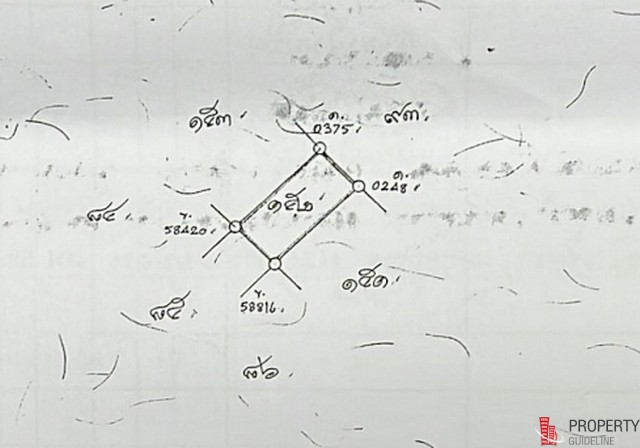 ๑๕๓.
ด.
0375
๙๓.
ด.
0248.
๑๕๒
๘๔.
ข.
58420.
๑๕๑.
๘๕.
ข.
58816.
๘๖.
PROPERTY
GUIDELINE